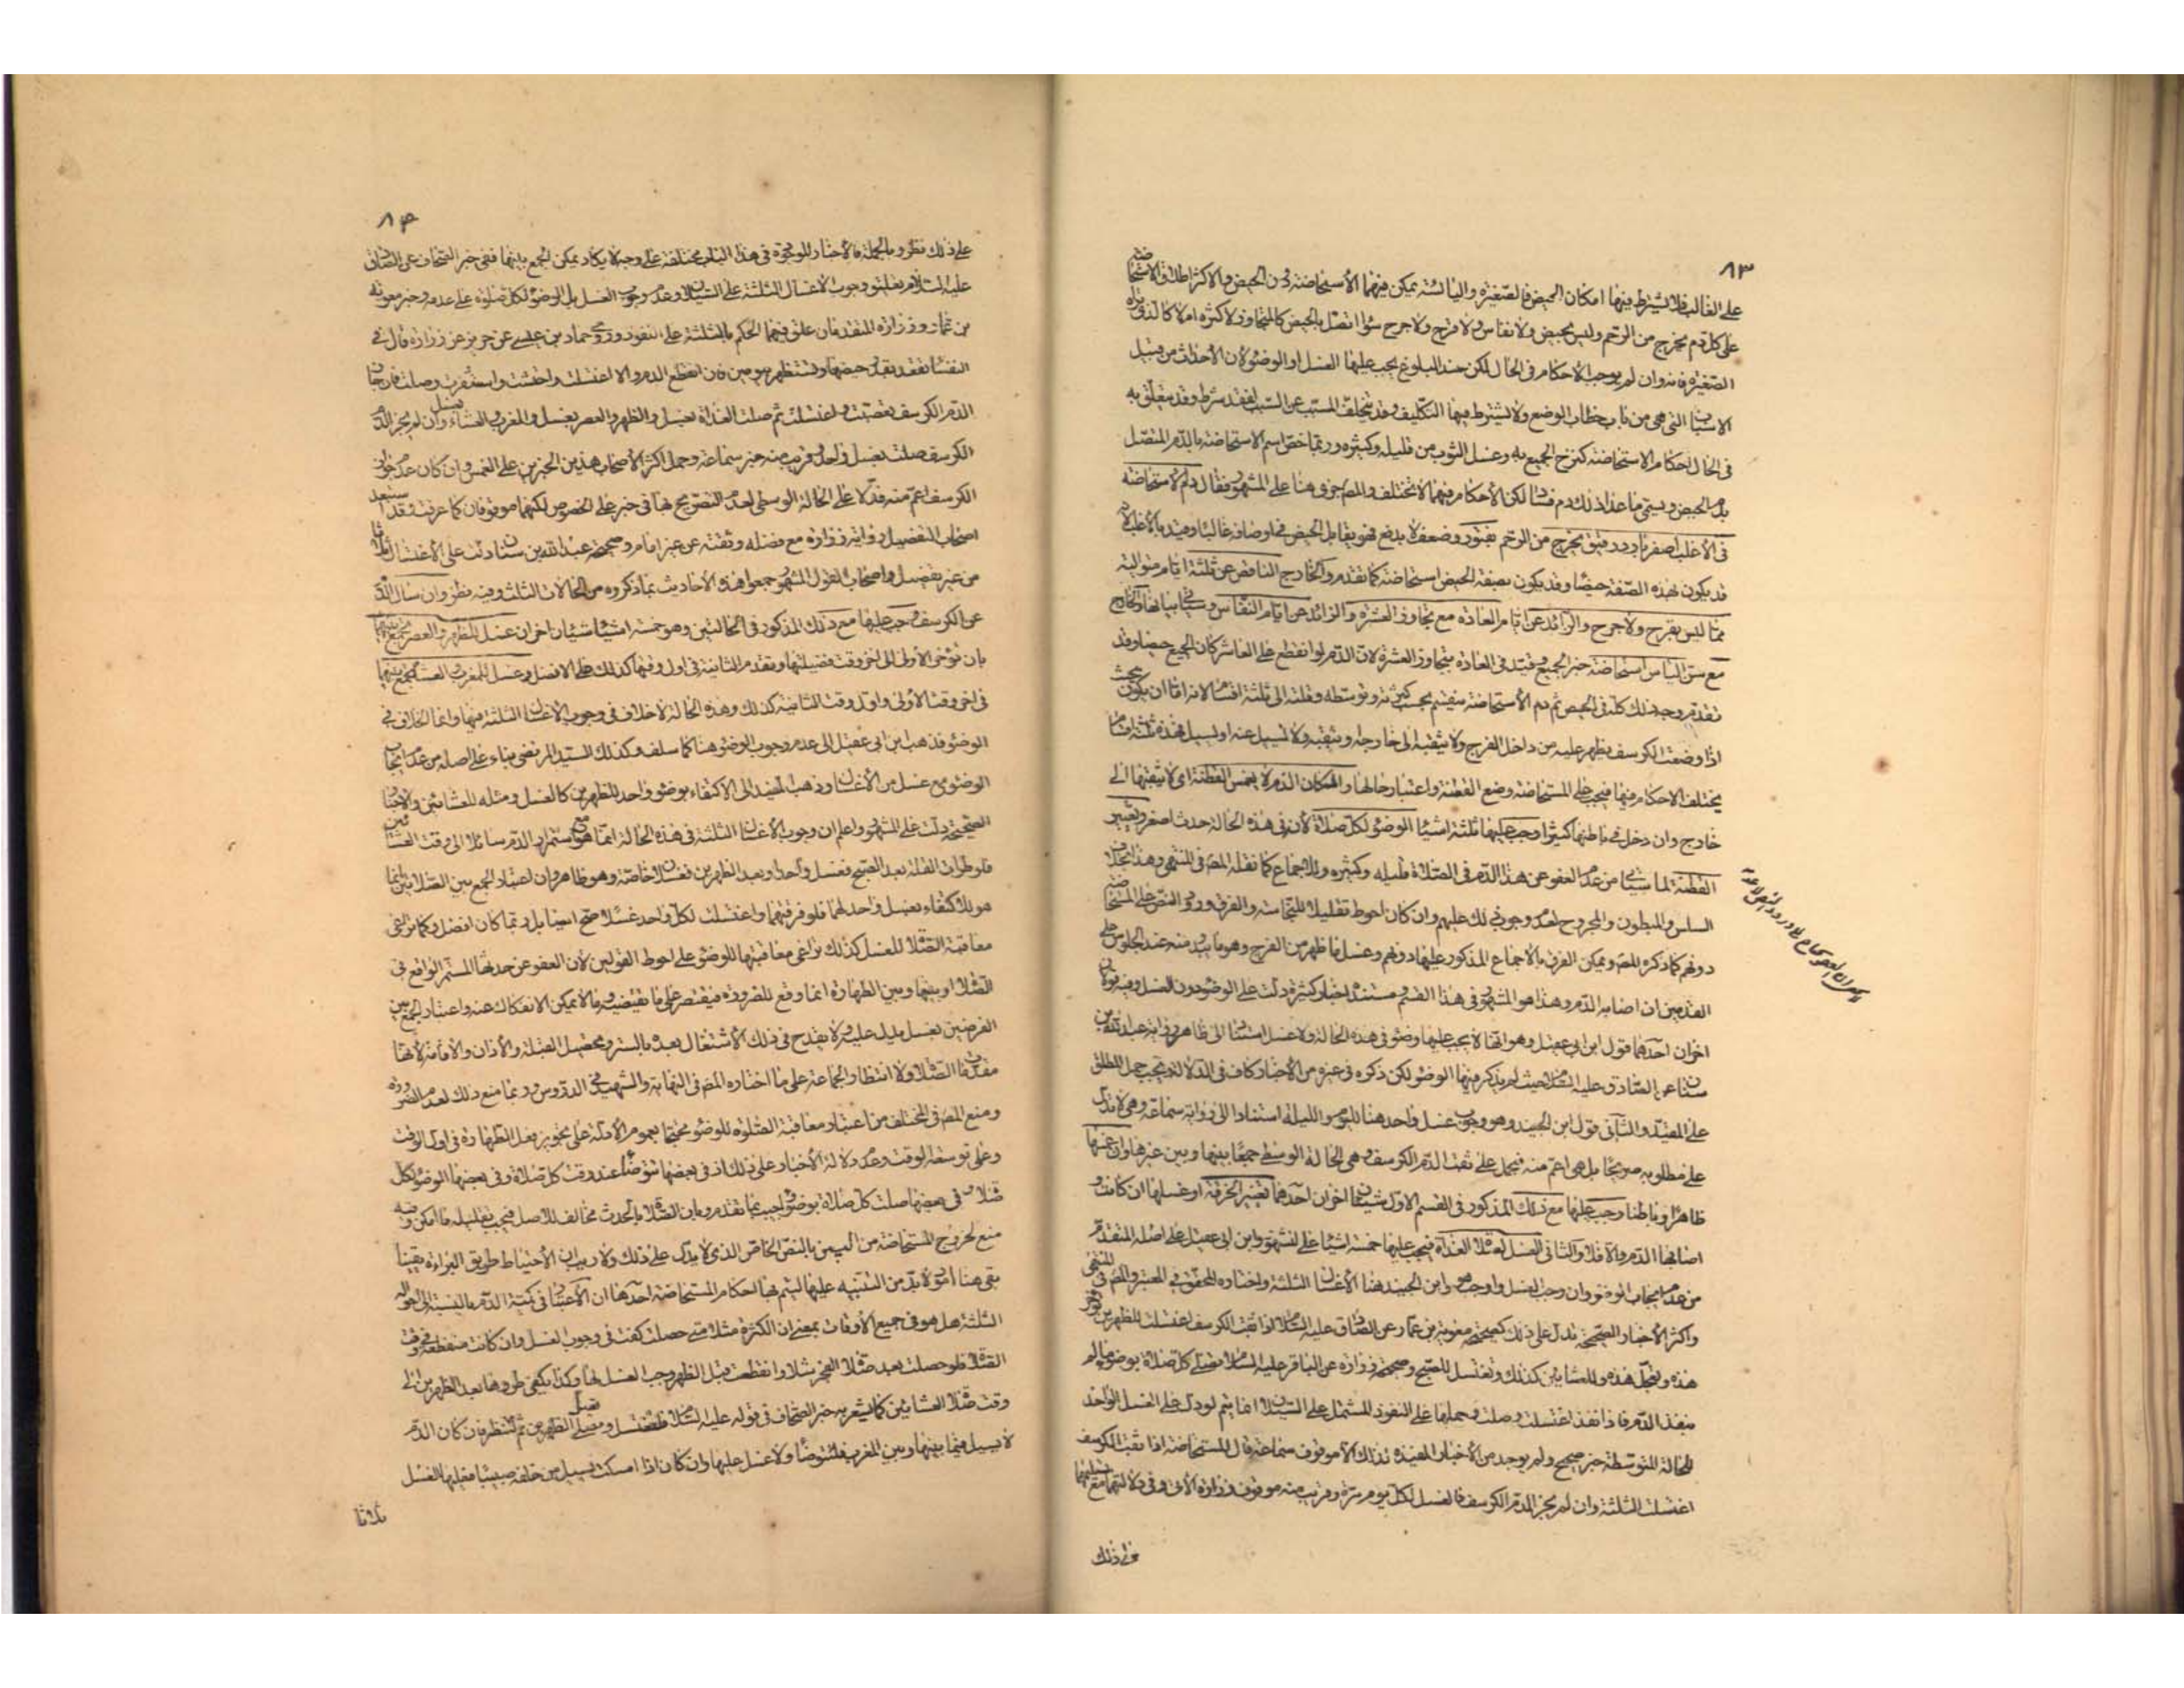 ٨٣
على الغالب فلا يشترط فيها امكان الحيض فالصغيرة واليائسة يمكن فيهما الاستحاضة دون الحيض والاكثر اطلاق الاستحاضة
على كل دم يخرج من الرحم وليس بحيض ولا نفاس ولا قرح ولا جرح سواء اتصل بالحيض كالمتجاوز لاكثره ام لا كالذي تراه
الصغيرة فانه وان لم يوجب الاحكام فى الحال لكن عند البلوغ يجب عليها الغسل او الوضوء لان الأحداث من قبيل
الاسباب التى هى من باب خطاب الوضع ولا يشترط فيها التكليف وقد يتخلف المسبب عن السبب لفقد شرط وقد يتعلق به
فى الحال احكام الاستحاضة كنزح الجميع به وغسل الثوب من قليله وكثيره وربما خص اسم الاستحاضة بالدم المتصل
بدم الحيض ويسمى ما عدا ذلك دم فساد لكن الأحكام فيهما لا تختلف والمص جرى هنا على المشهور فقال دم الاستحاضة
فى الأغلب اصفر بارد رقيق يخرج من الرحم بفتور وضعف لا بدفع فهو يقابل الحيض فى اوصافه غالبا وقيد بالأغلب لانه
قد يكون بهذه الصفة حيضا وقد يكون بصفة الحيض استحاضة كما تقدم والخارج الناقص عن ثلثة ايام متوالية
مما ليس بقرح ولا جرح والزائد عن ايام العادة مع تجاوز العشرة والزائد عن ايام النفاس وسياتى بيانها والخارج
مع سن الياس استحاضة خبر الجميع وقيد فى العادة بتجاوز العشرة لان الدم لو انقطع على العاشر كان الجميع حيضا وقد
تقدم وجه ذلك كله فى الحيض ثم دم الأستحاضة ينقسم بحسب كثرته وتوسطه وقلته الى ثلثة اقسام لانه اما ان يكون بحيث
اذا وضعت الكرسف يظهر عليه من داخل الفرج ولا يثقبه الى خارجه او يثقبه ولا يسيل عنه او يسيل فهذه ثلثة اقسام
يختلف الاحكام فيها فيجب على المستحاضة وضع القطنة واعتبار حالها فان كان الدم لا يغمس القطنة اى لا يثقبها الى
خارج وان دخل فى باطنها كثيرا وجب عليها ثلثة اشياء الوضوء لكل صلاة لأن فى هذه الحالة حدث اصغر وتغيير
القطنة لما سياتى من عدم العفو عن هذا الدم فى الصلاة قليله وكثيره وللاجماع كما نقله المص فى المنتهى وهذا بخلاف
السلس والمبطون والمجروح لعدم وجوب ذلك عليهم وان كان احوط تقليلا للنجاسة والفرق ورود النص على المستحاضة
دونهم كما ذكره المص ويمكن الفرق بالاجماع المذكور عليها دونهم وغسل ما ظهر من الفرج وهو ما يبدو منه عند الجلوس على
القدمين ان اصابه الدم وهذا هو المشهور فى هذا القسم ومستنده اخبار كثيرة دلت على الوضوء دون الغسل وفيه قولان
اخران احدهما قول ابن ابى عقيل وهو انها لا يجب عليها وضوء فى هذه الحالة ولا غسل استنادا الى ظاهر رواية عبد الله بن
سنان عن الصادق عليه السلام حيث لم يذكر فيها الوضوء لكن ذكره فى غيره من الأخبار كاف فى الدلالة ويجب حمل المطلق
على المقيد والثانى قول ابن الجنيد وهو وجوب غسل واحد هنا لليوم والليلة استنادا الى رواية سماعة وهى لا تدل
على مطلوبه صريحا بل هى اعم منه فيحمل على ثقب الدم الكرسف وهى الحالة الوسطى جمعا بينها وبين غيرها وان غمسها
ظاهرا وباطنا وجب عليها مع ذلك المذكور فى القسم الاول شيئان اخران احدهما تغيير الخرقة او غسلها ان كانت
اصابها الدم والا فلا والثانى الغسل لصلاة الغداة فيجب عليها خمسة اشياء على المشهور وابن ابى عقيل على اصله المتقدم
من عدم ايجاب الوضوء وان وجب الغسل واوجب هو وابن الجنيد هنا الأغسال الثلثة واختاره المحقق فى المعتبر والمص فى المنتهى
واكثر الأخبار الصحيحة تدل على ذلك كصحيحة معوية بن عمار عن الصادق عليه السلام اذا ثقب الكرسف اغتسلت للظهرين تؤخر
هذه وتعجل هذه وللعشائين كذلك وتغتسل للصبح وصحيحة زرارة عن الباقر عليه السلام تصلى كل صلاة بوضوء ما لم
ينفذ الدم فاذا نفذ اغتسلت وصلت وحملها على النفوذ المشتمل على السيلان انما يتم لو دل على الغسل الواحد
للحالة المتوسطة خبر صحيح ولم يوجد من الأخبار المفيدة لذلك الا موقوف سماعة قال المستحاضة اذا ثقب الكرسف
اغتسلت الثلثة وان لم يجز الدم الكرسف فالغسل لكل يوم مرة وقريب منه موقوف زرارة الآتى وفى دلالتهما مع تسليمهما
على ذلك
٨٤
على ذلك نظر وبالجملة فالأخبار الموجودة فى هذا الباب مختلفة على وجه لا يكاد يمكن الجمع بينها ففى خبر الصحاف عن الصادق
عليه السلام تعليق وجوب الاغسال الثلثة على السيلان وعدم وجوب الغسل بل الوضوء لكل صلوة على عدمه وخبر معوية
بن عمار وزرارة المتقدمان علق فيهما الحكم بالثلثة على النفوذ وروى حماد بن عيسى عن حريز عن زرارة قال فى
النفساء تقعد بقدر حيضها وتستظهر بيومين فان انقطع الدم والا اغتسلت واحتشت واستثفرت وصلت فان جاز
الدم الكرسف تعصبت واغتسلت ثم صلت الغداة بغسل والظهر والعصر بغسل والمغرب والعشاء بغسل وان لم يجز الدم
الكرسف صلت بغسل واحد وقريب منه خبر سماعة وحمل اكثر الأصحاب هذين الخبرين على الغمس وان كان عدم جواز
الكرسف اعم منه فدلا على الحالة الوسطى لعدم التصريح بها فى خبر على الخصوص لكنهما موقوفان كما عرفت وقد استبعد
اصحاب التفصيل رواية زرارة مع فضله وثقته عن غير امام وصحيحة عبد الله بن سنان دلت على الأغسال الثلاث
من غير تفصيل واصحاب القول المشهور جمعوا هذه الأحاديث بما ذكروه من الحالات الثلث وفيه نظر وان سال الدم
عن الكرسف وجب عليها مع ذلك المذكور فى الحالتين وهو خمسة اشياء شيئان اخران غسل للظهر والعصر تجمع بينهما
بان تؤخر الأولى الى اخر وقت فضيلتها وتقدم الثانية فى اول وقتها كذلك على الافضل وغسل للمغرب والعشاء تجمع بينهما
فى اخر وقت الأولى واول وقت الثانية كذلك وهذه الحالة لا خلاف فى وجوب الأغسال الثلثة فيها وانما الخلاف فى
الوضوء فذهب ابن ابى عقيل الى عدم وجوب الوضوء هنا كما سلف وكذلك السيد المرتضى بناء على اصله من عدم ايجاب
الوضوء مع غسل من الأغسال وذهب المفيد الى الاكتفاء بوضوء واحد للظهرين كالغسل ومثله للعشائين والاخبار
الصحيحة دلت على المشهور واعلم ان وجوب الأغسال الثلثة فى هذه الحالة انما هو مع استمرار الدم سائلا الى وقت العشائين
فلو طرأت القلة بعد الصبح فغسل واحد او بعد الظهرين فغسلان خاصة وهو ظاهر وان اعتبار الجمع بين الصلاتين انما
هو للاكتفاء بغسل واحد لهما فلو فرقتهما واغتسلت لكل واحد غسلا صح ايضا بل ربما كان افضل وكما تراعى
معاقبة الصلاة للغسل كذلك تراعى معاقبتها للوضوء على احوط القولين لأن العفو عن حدثها المستمر الواقع فى
الصلاة او بينها وبين الطهارة انما وقع للضرورة فيقتصر على ما تقتضيه وما لا يمكن الانفكاك عنه واعتبار الجمع بين
الفرضين بغسل يدل عليه ولا يقدح فى ذلك الأشتغال بعده بالستر وتحصيل القبلة والأذان والأقامة لأنها
مقدمات الصلاة ولا انتظار الجماعة على ما اختاره المص فى النهاية والشهيد فى الدروس وربما منع ذلك لعدم الضرورة
ومنع المص فى المختلف من اعتبار معاقبة الصلوة للوضوء محتجا بعموم الأدلة على تجويز فعل الطهارة فى اول الوقت
وعلى توسعة الوقت وعدم دلالة الأخبار على ذلك اذ فى بعضها تتوضأ عند وقت كل صلاة وفى بعضها الوضوء لكل
صلاة وفى بعضها صلت كل صلاة بوضوء واجيب بما تقدم وبان الصلاة بالحدث مخالف للاصل فيجب تقليله ما امكن وفيه
منع لخروج المستحاضة من البين بالنص الخاص الذى لا يدل على ذلك ولا ريب ان الأحتياط طريق البراءة يقينا
بقى هنا أمور لا بد من التنبيه عليها ليتم بها احكام المستحاضة احدها ان الاعتبار فى كمية الدم بالنسبة الى احواله
الثلثة هل هو فى جميع الأوقات بمعنى ان الكثرة مثلا متى حصلت كفت فى وجوب الغسل وان كانت منقطعة فى وقت
الصلاة فلو حصلت بعد صلاة الفجر مثلا وانقطعت قبل الظهر وجب الغسل لها وكذا يكفى طروها بعد الظهرين الى
وقت صلاة العشائين كما يشعر به خبر الصحاف فى قوله عليه السلام فلتغتسل وتصلى الظهرين ثم لتنظر فان كان الدم
لا يسيل فيما بينها وبين المغرب فلتتوضأ ولا غسل عليها وان كان اذا امسكت يسيل من خلفه صبيبا فعليها الغسل
ثلاثا